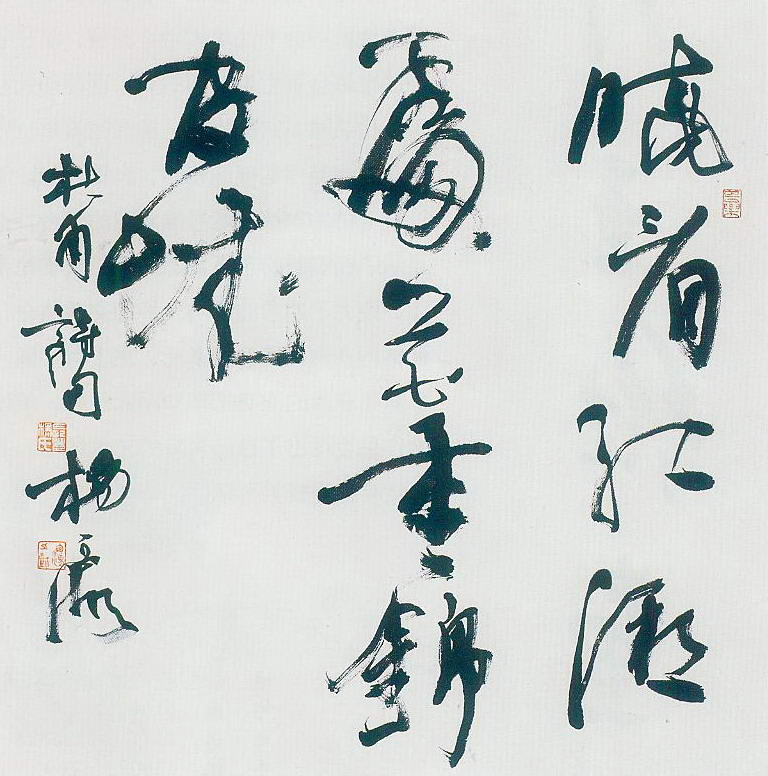 曉看紅濕
處花重錦
官城
杜甫詩句 楊